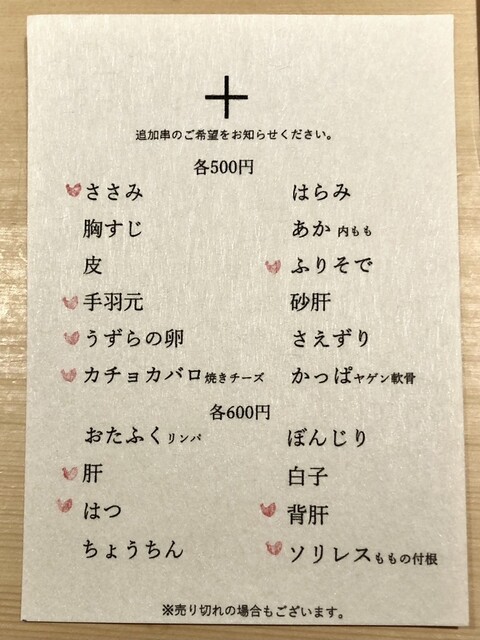 追加串のご希望をお知らせください。
各500円
ささみ はらみ
胸すじ あか 内もも
皮 ふりそで
手羽元 砂肝
うずらの卵 さえずり
カチョカバロ焼きチーズ かっぱヤゲン軟骨
各600円
おたふくリンパ ぼんじり
肝 白子
はつ 背肝
ちょうちん ソリレスももの付根
※売り切れの場合もございます。